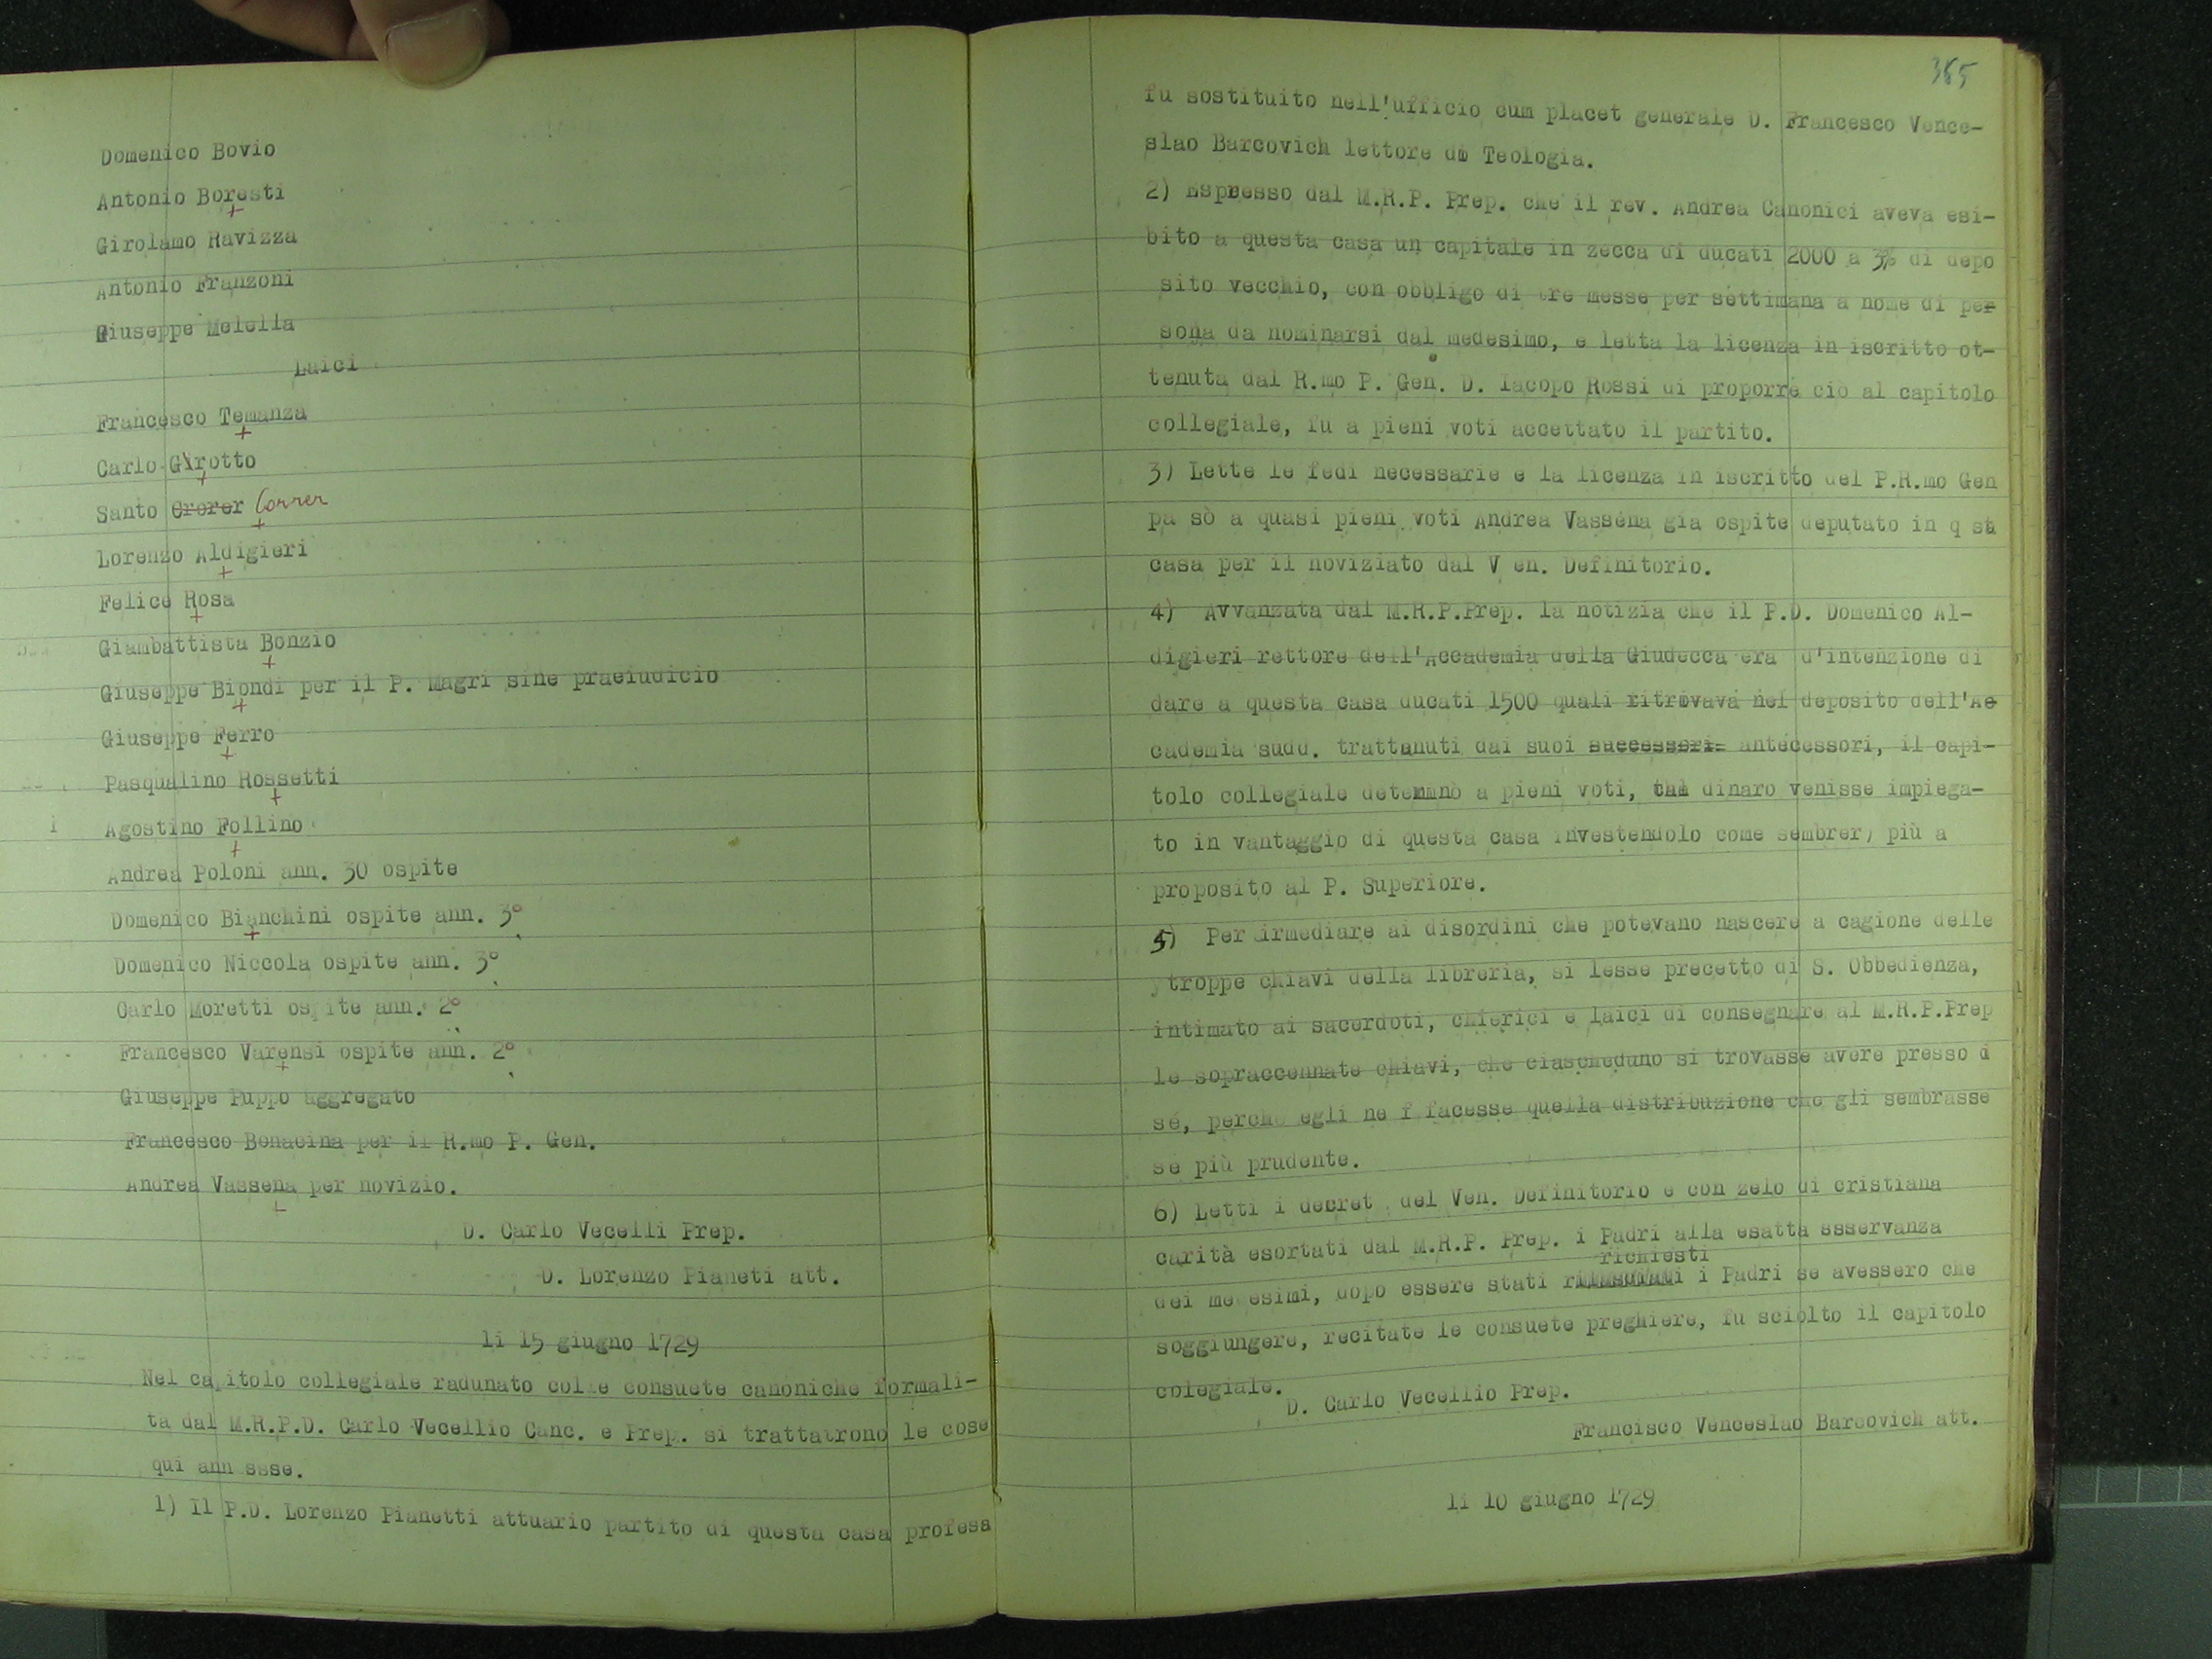 Domenico Bovio
Antonio Boresti
+
Girolamo Ravizza
Antonio Franzoni
Giuseppe Melella
Laici
Francesco Temanza
+
Carlo Girotto
+
Santo Crorer Correr
+
Lorenzo Aldigieri
+
Felice Rosa
+
Giambattista Bonzio
+
Giuseppe Biondi per il P. Magri sine praeiudicio
+
Giuseppe Ferro
+
Pasqualino Rossetti
+
Agostino Follino
+
Andrea Poloni ann. 30 ospite
Domenico Bianchini ospite ann. 3°
+
Domenico Niccola ospite ann. 3°
Carlo Moretti ospite ann. 2°
Francesco Varensi ospite ann. 2°
+
Giuseppe Puppo aggregato
Francesco Bonacina per il R.mo P. Gen.
Andrea Vassena per novizio.
D. Carlo Vecelli Prep.
D. Lorenzo Pianeti att.
li 15 giugno 1729
Nel capitolo collegiale radunato colle consuete canoniche formali-
tà dal M.R.P.D. Carlo Vecellio Canc. e Prep. si trattatrono le cose
qui ann sse.
1) Il P.D. Lorenzo Pianetti attuario partito di questa casa profesa
365
fu sostituito nell'ufficio cum placet generale D. Francesco Vence-
slao Barcovich lettore di Teologia.
2) Espresso dal M.R.P. Prep. che il rev. Andrea Canonici aveva esi-
bito a questa casa un capitale in zecca di ducati 2000 a 3% di depo
sito vecchio, con obbligo di tre messe per settimana a nome di per
sona da nominarsi dal medesimo, e letta la licenza in iscritto ot-
tenuta dal R.mo P. Gen. D. Iacopo Rossi di proporre ciò al capitolo
collegiale, fu a pieni voti accettato il partito.
3) Lette le fedi necessarie e la licenza in iscritto del P.R.mo Gen
pa sò a quasi pieni voti Andrea Vassena già ospite deputato in q sta
casa per il noviziato dal V en. Definitorio.
4) Avvanzata dal M.R.P.Prep. la notizia che il P.D. Domenico Al-
digieri rettore dell'Accademia della Giudecca era d'intenzione di
dare a questa casa ducati 1500 quali ritrovava nel deposito dell'Ac
cademia sudd. trattenuti dai suoi successori- antecessori, il capi-
tolo collegiale determinò a pieni voti, tal dinaro venisse impiega-
to in vantaggio di questa casa investendolo come sembrer) più a
proposito al P. Superiore.
5) Per irmediare ai disordini che potevano nascere a cagione delle
troppe chiavi della libreria, si lesse precetto di S. Obbedienza,
intimato ai sacerdoti, chierici e laici di consegnare al M.R.P.Prep
le sopraccennate chiavi, che ciascheduno si trovasse avere presso d
sé, perche egli ne f facesse quella distribuzione che gli sembrasse
se più prudente.
6) Letti i decret del Ven. Definitorio e con zelo di cristiana
carità esortati dal M.R.P. Prep. i Padri alla esatta sservanza
richiesti
dei me esimi, dopo essere stati i Padri se avessero che
soggiungere, recitate le consuete preghiere, fu sciolto il capitolo
colegiale.
D. Carlo Vecellio Prep.
Francisco Venceslao Barcovich att.
li 10 giugno 1729